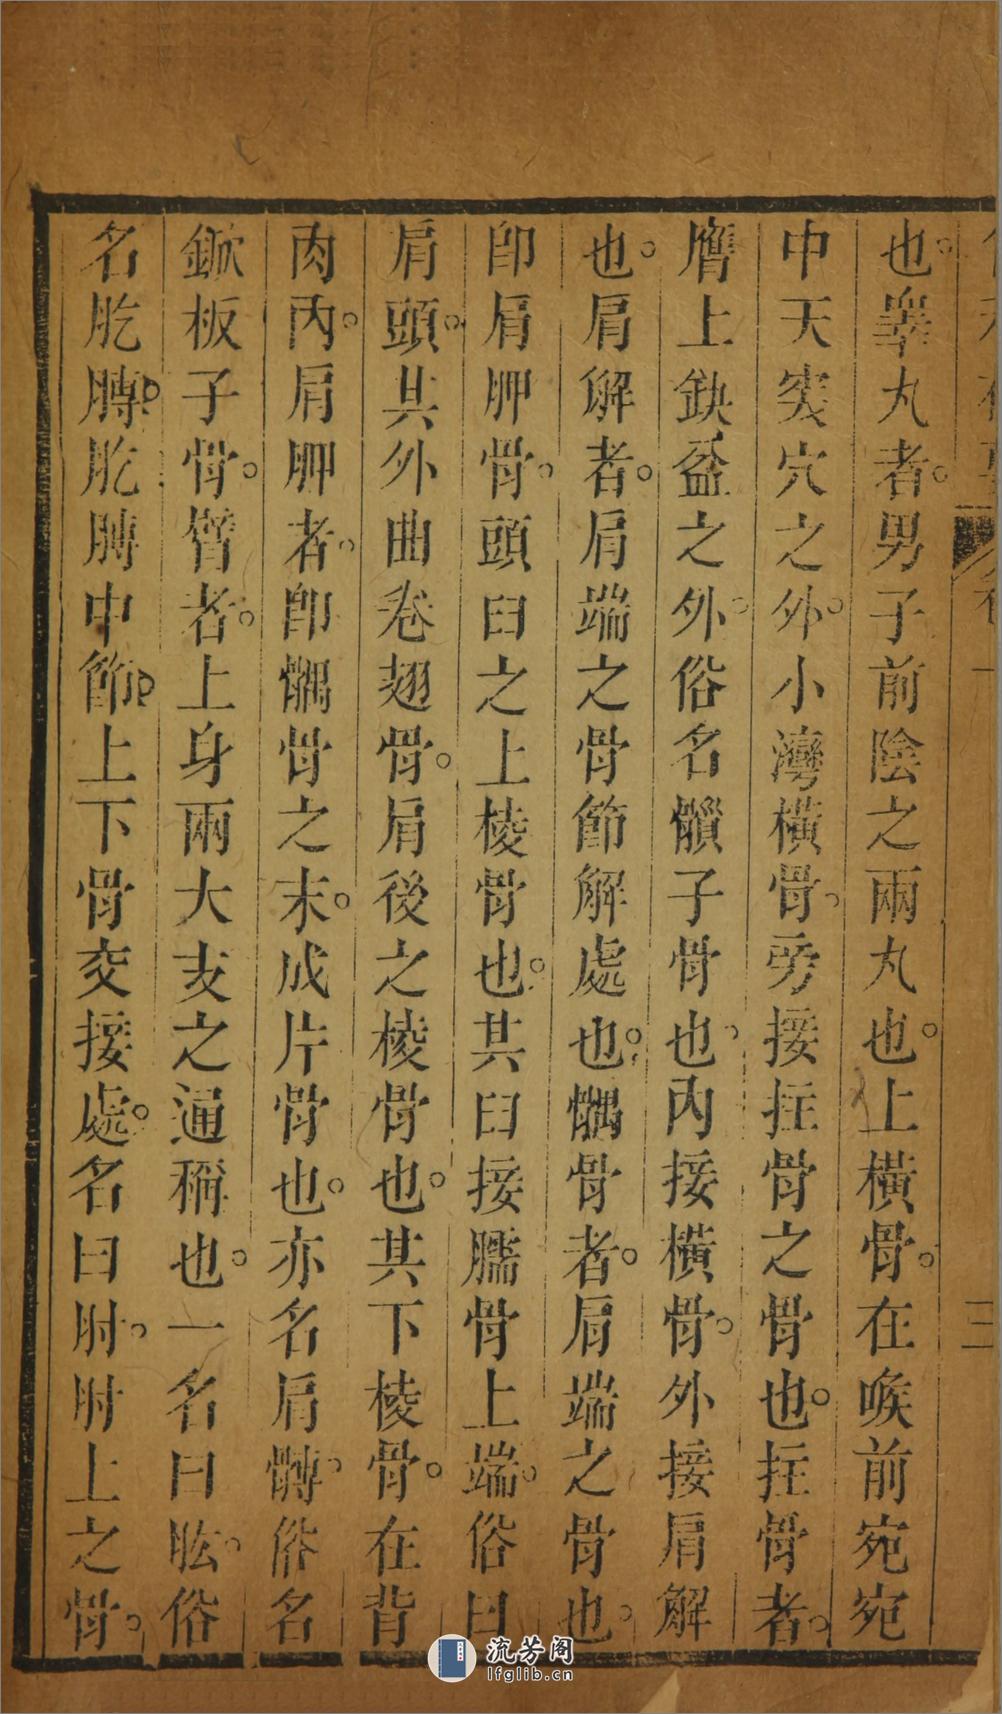 也。睾丸者。男子前陰之兩丸也。上橫骨。在喉前宛宛
中天突穴之外。小灣橫骨。旁接拄骨之骨也。拄骨者。
膺上缺盆之外。俗名髃子骨也。內接橫骨。外接肩解
也。肩解者。肩端之骨節解處也。髃骨者。肩端之骨也。
卽肩胛骨。頭臼之上棱骨也。其臼接臑骨上端。俗曰
肩頭。其外曲卷翅骨。肩後之棱骨也。其下棱骨。在背
肉內。肩胛者。卽髃骨之末。成片骨也。亦名肩髆。俗名
鍁板子骨。臂者。上身兩大支之通稱也。一名曰肱。俗
名肐膊。肐膊中節。上下骨交接處。名曰肘。肘上之骨。
三
流芳阁
lfglib.cn